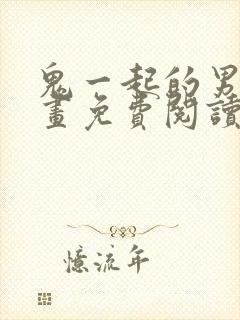 鬼一起的男
畫免費閱讀
憶流年